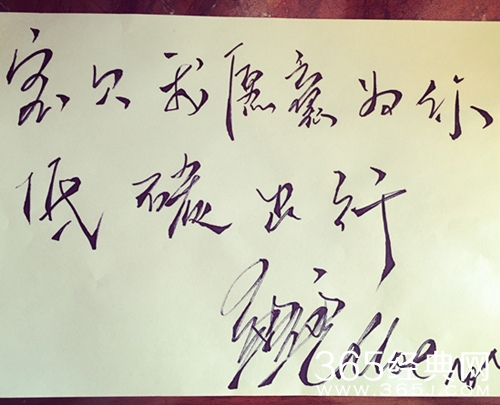 宝贝我愿意为你
低碳出行
365经典网
www.365j.com